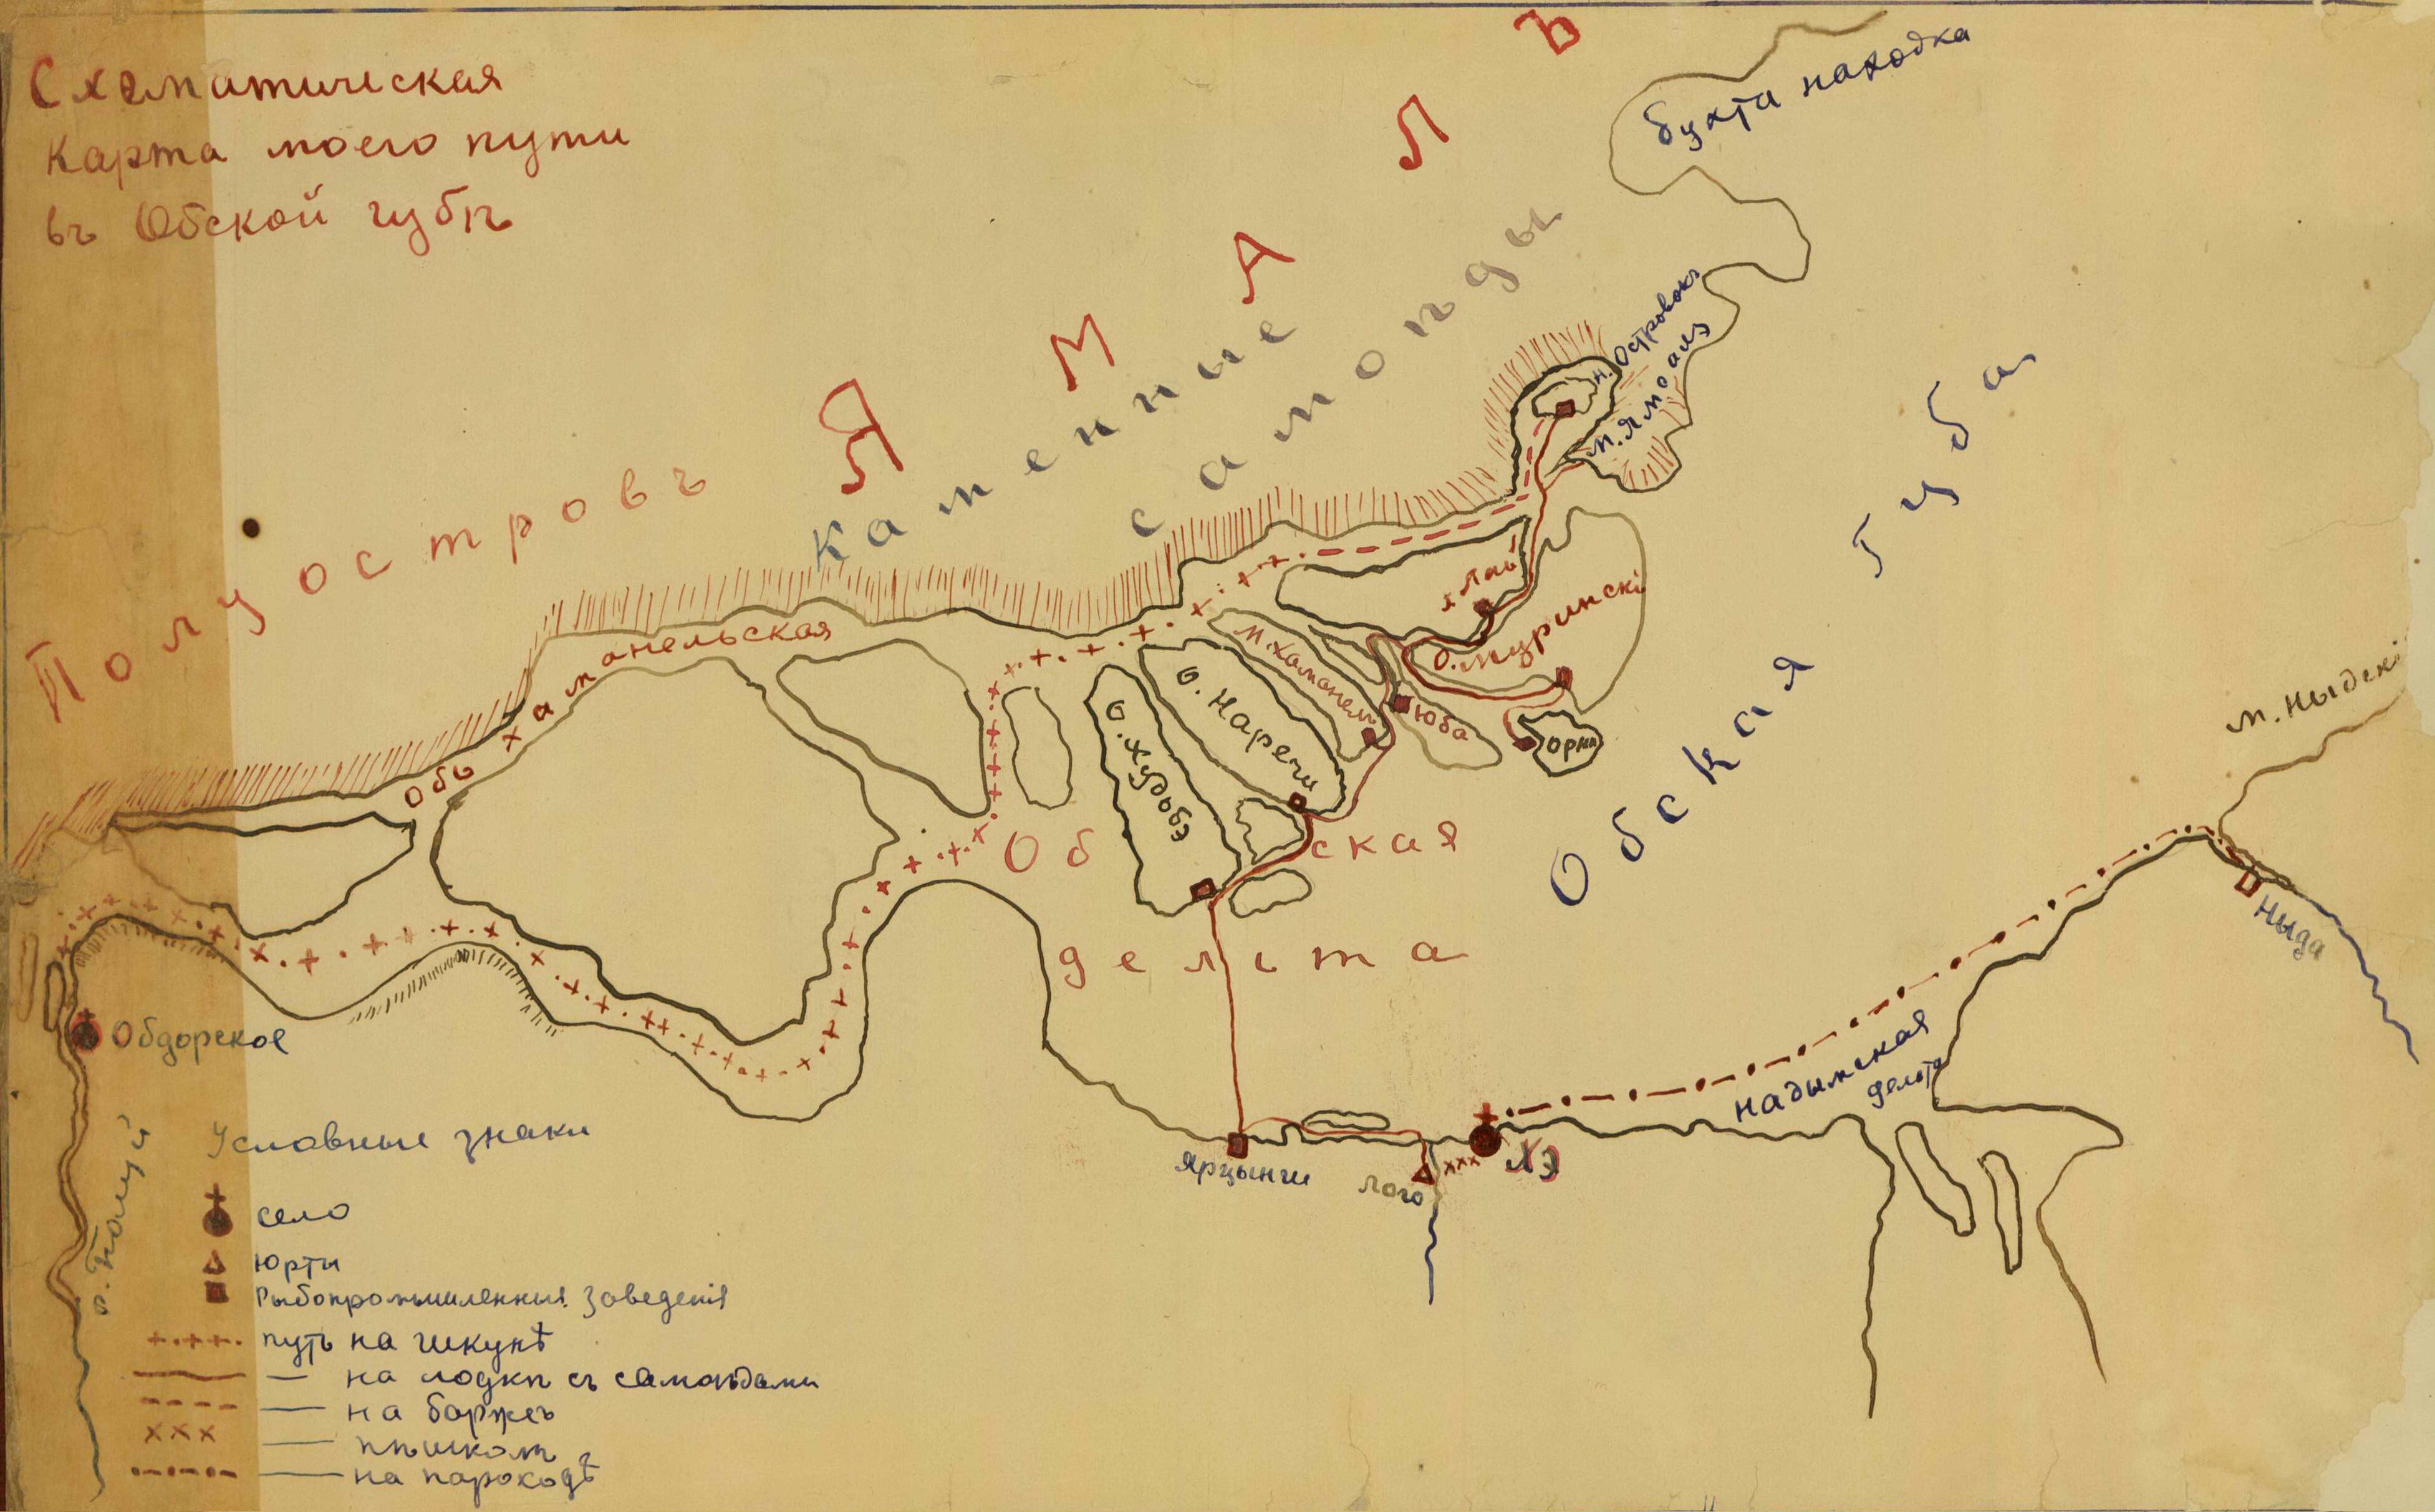 Схематическая
Карта моего пути
въ Обской губѣ
Полуостровъ
ЯМАЛЪ
Каменные
самоѣды
бухта находка
н. Островокъ
м. Ямоалэ
Обская губа
Хаманельская
Обь
х Лаъ
о. Муринскі
м. Хаманел
о. Наречи
о. Худобея
Юба
Орни
Обская
делта
м. Ныдскі
Ныда
надымская
делта
Хэ
Лого
Ярцынги
Обдорское
р. Полуй
Условные знаки
село
юрты
Рыбопромышленныя заведенія
путь на шкунѣ
— на лодкѣ съ самоѣдами
— на баржѣ
— пѣшкомъ
— на пароходѣ